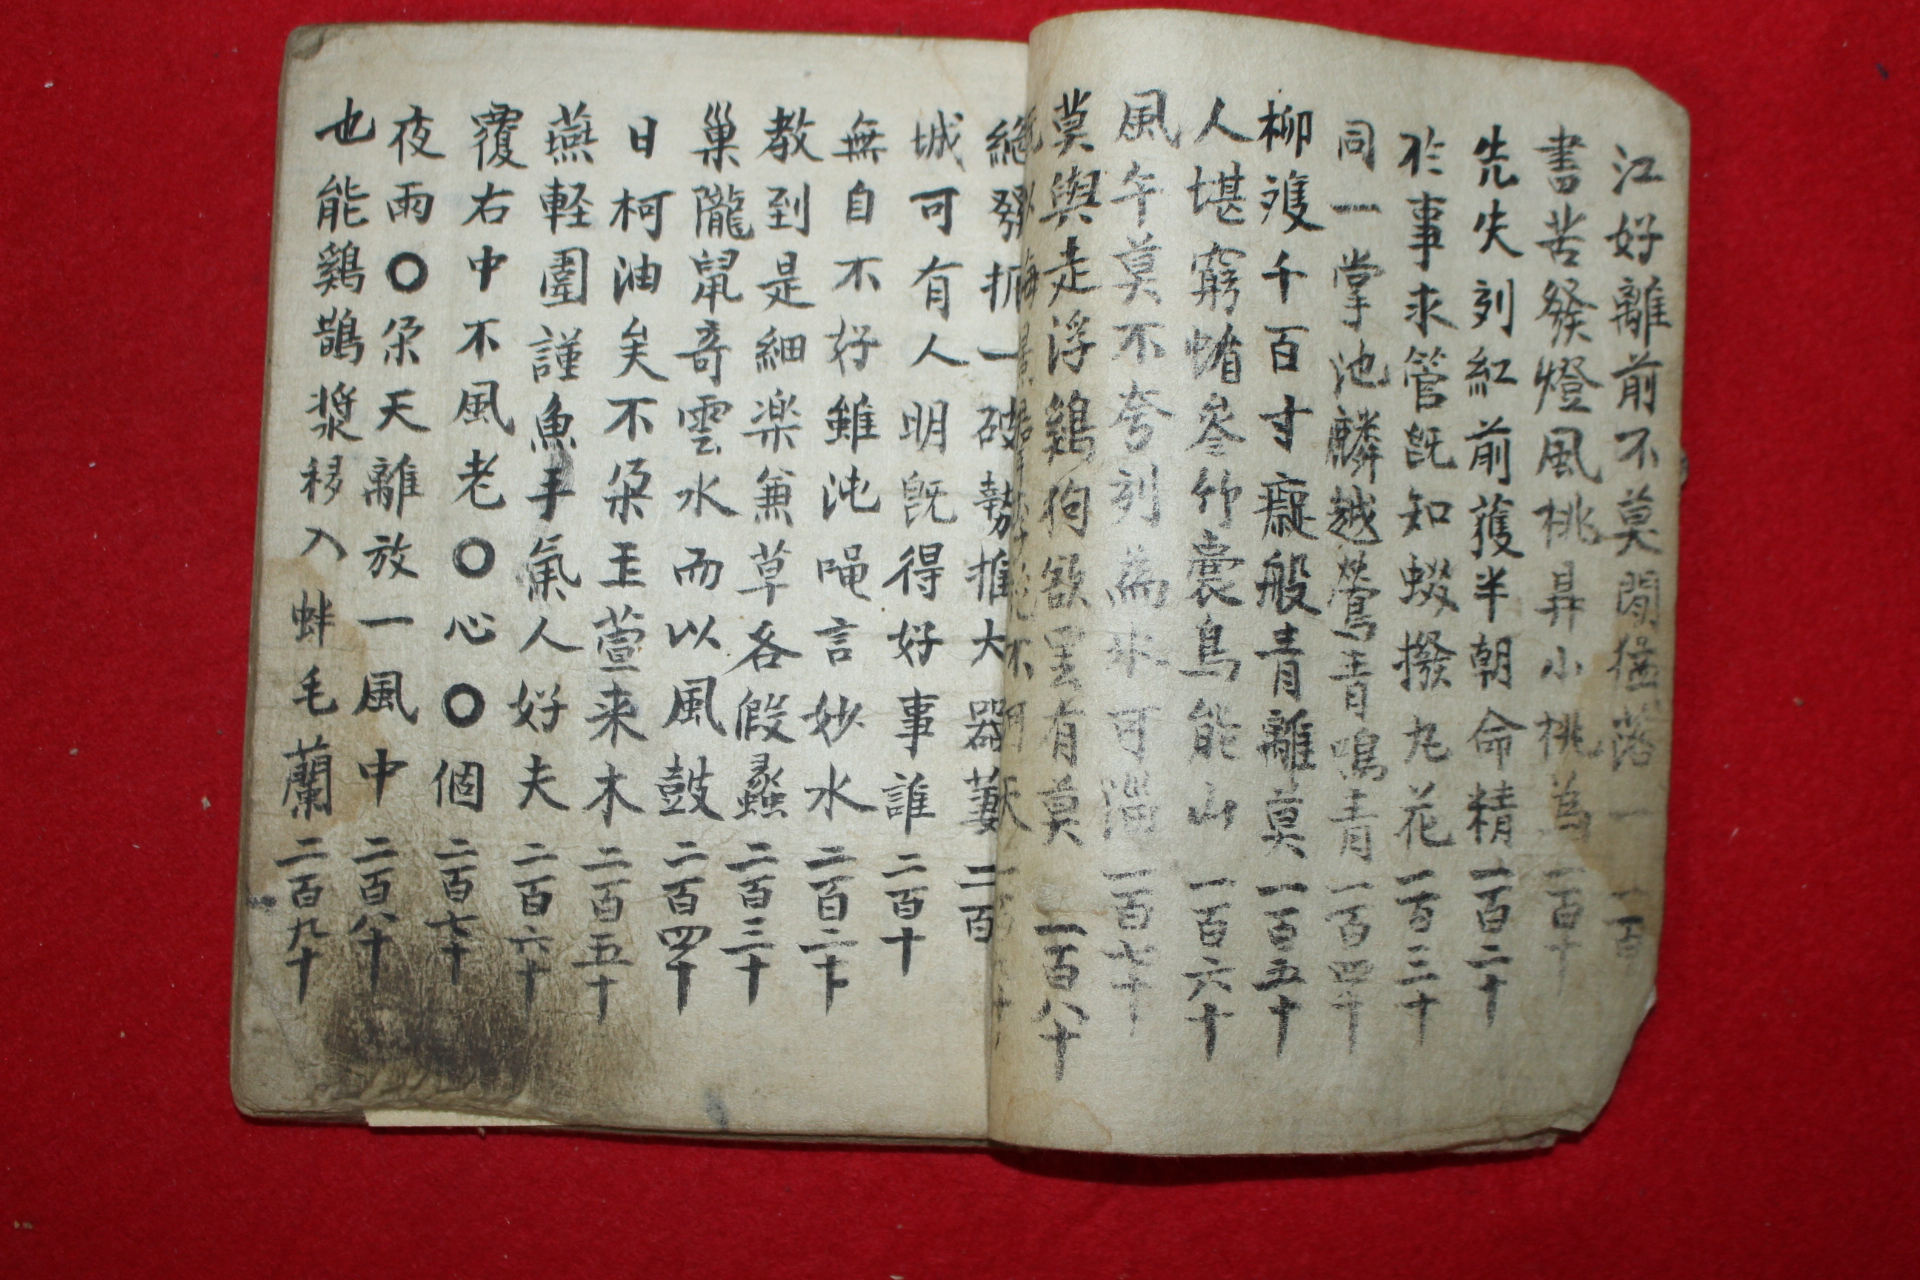 江好離前不莫聞猶落一 一百
書苦發燈風桃昇小桃為 一百十
先失列紅前獲半朝命精 一百二十
於事求管既知蝃撥九花 一百三十
同一掌池麟越鶯青鳴青 一百四十
柳獲千百寸癡般青離莫 一百五十
人堪窮惰參竹裳烏能山 一百六十
風午莫不夸列為水可淄 一百七十
莫與走浮鷄狗欲里有莫 一百八十
總發扼一破勢推大器萋 二百
城可有人明既得好事誰 二百十
無自不好雖沌嗯言妙水 二百二十
教到是細楽兼草各假蠡 二百三十
巢隴鼠奇雲水而以風鼓 二百四十
日柯油矣不朶玉萱来木 二百五十
燕軽圍謹魚手氣人好夫 二百六十
覆右中不風老〇心〇個 二百七十
夜雨〇朶天離放一風中 二百八十
也能鷄鵲漿移入蚌毛蘭 二百九十